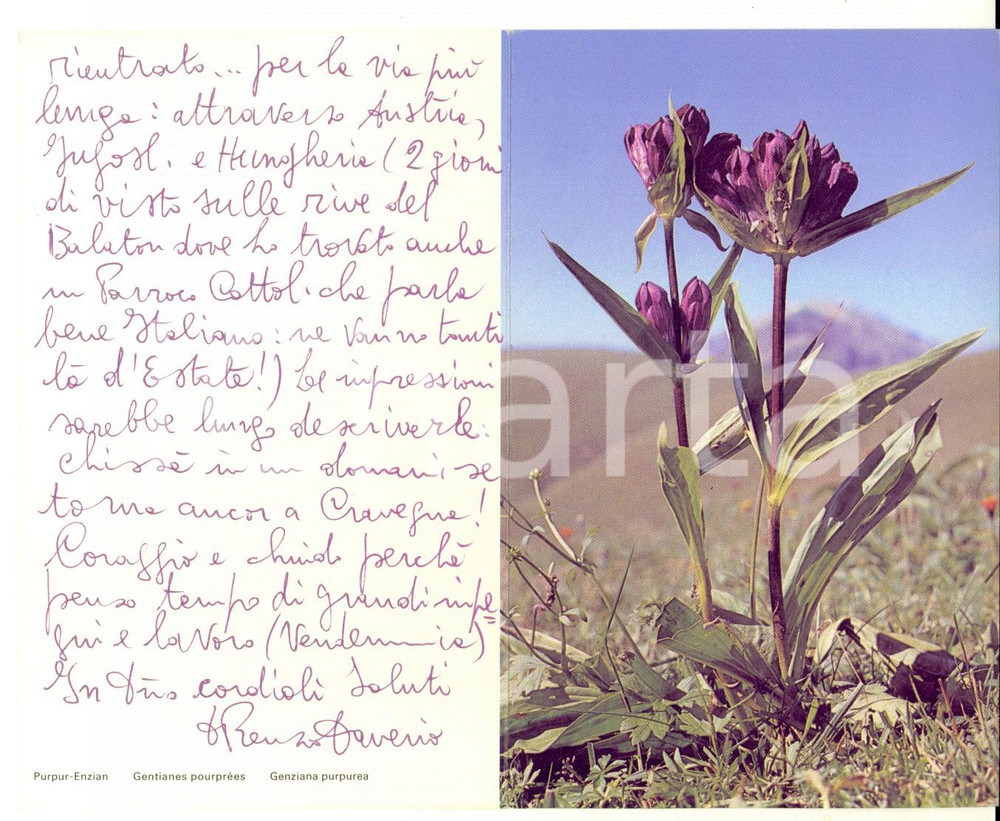 rientrato... per la via più
lunga: attraverso Austria,
Jugosl. e Hungheria (2 giorni
di visto sulle rive del
Balaton dove ho trovato anche
un Parroco Cattol. che parla
bene Italiano: ne vanno tanti
là d'Estate!) Le impressioni
sarebbe lungo descriverle:
chissà in un domani, se
torna ancor a Cravegna!
Coraggio e chiudo perchè
penso tempo di grandi impe-
gni e lavoro (Vendemmia)
In Dño cordiali Saluti
Renzo Daverio
Purpur-Enzian Gentianes pourprées Genziana purpurea
arta